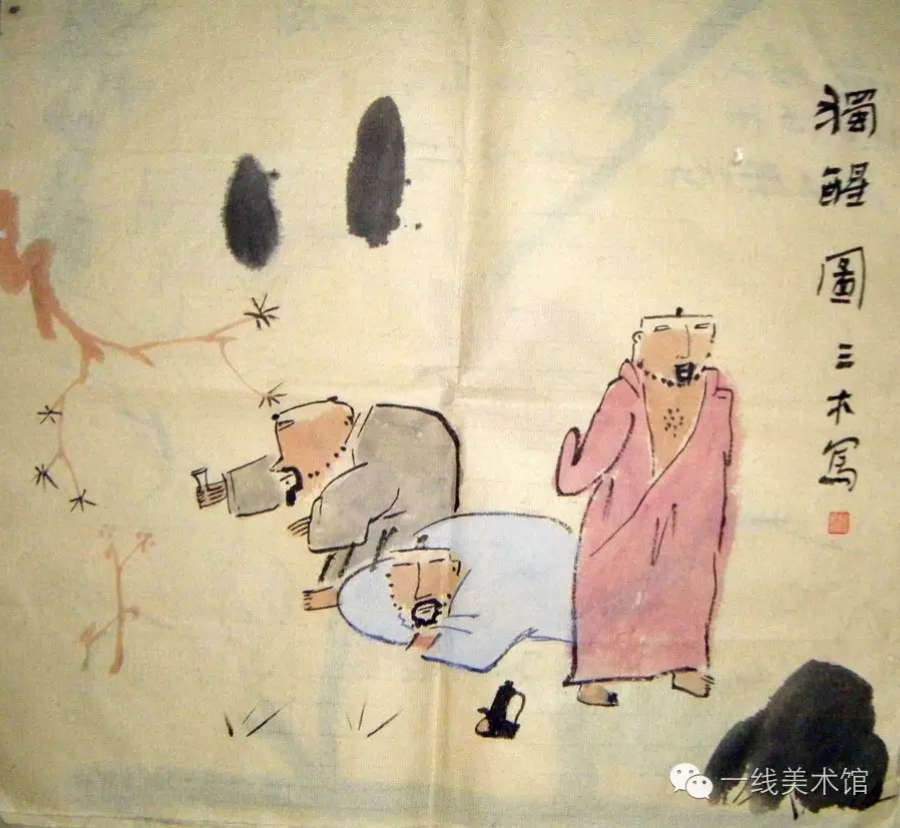 獨醒圖 三木寫
一线美术馆